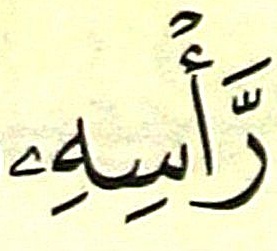 رَّأْسِهِۦ